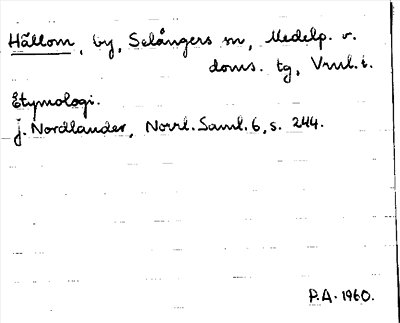 Hällom, by, Selångers sn, Medelp. v.
doms. tg, Vrnl. i.
Etymologi.
J. Nordlander, Norrl. Saml. 6, s. 244.
P.A. 1960.